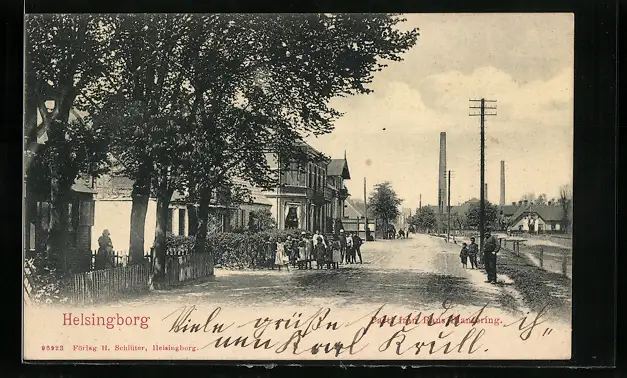 Helsingborg Parti från Raus Plantering.
Viele grüße ich
Karl Krull.
Förlag H. Schlüter, Helsingborg.